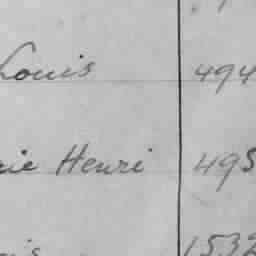 Louis 494
rie Henri 495
is 1532